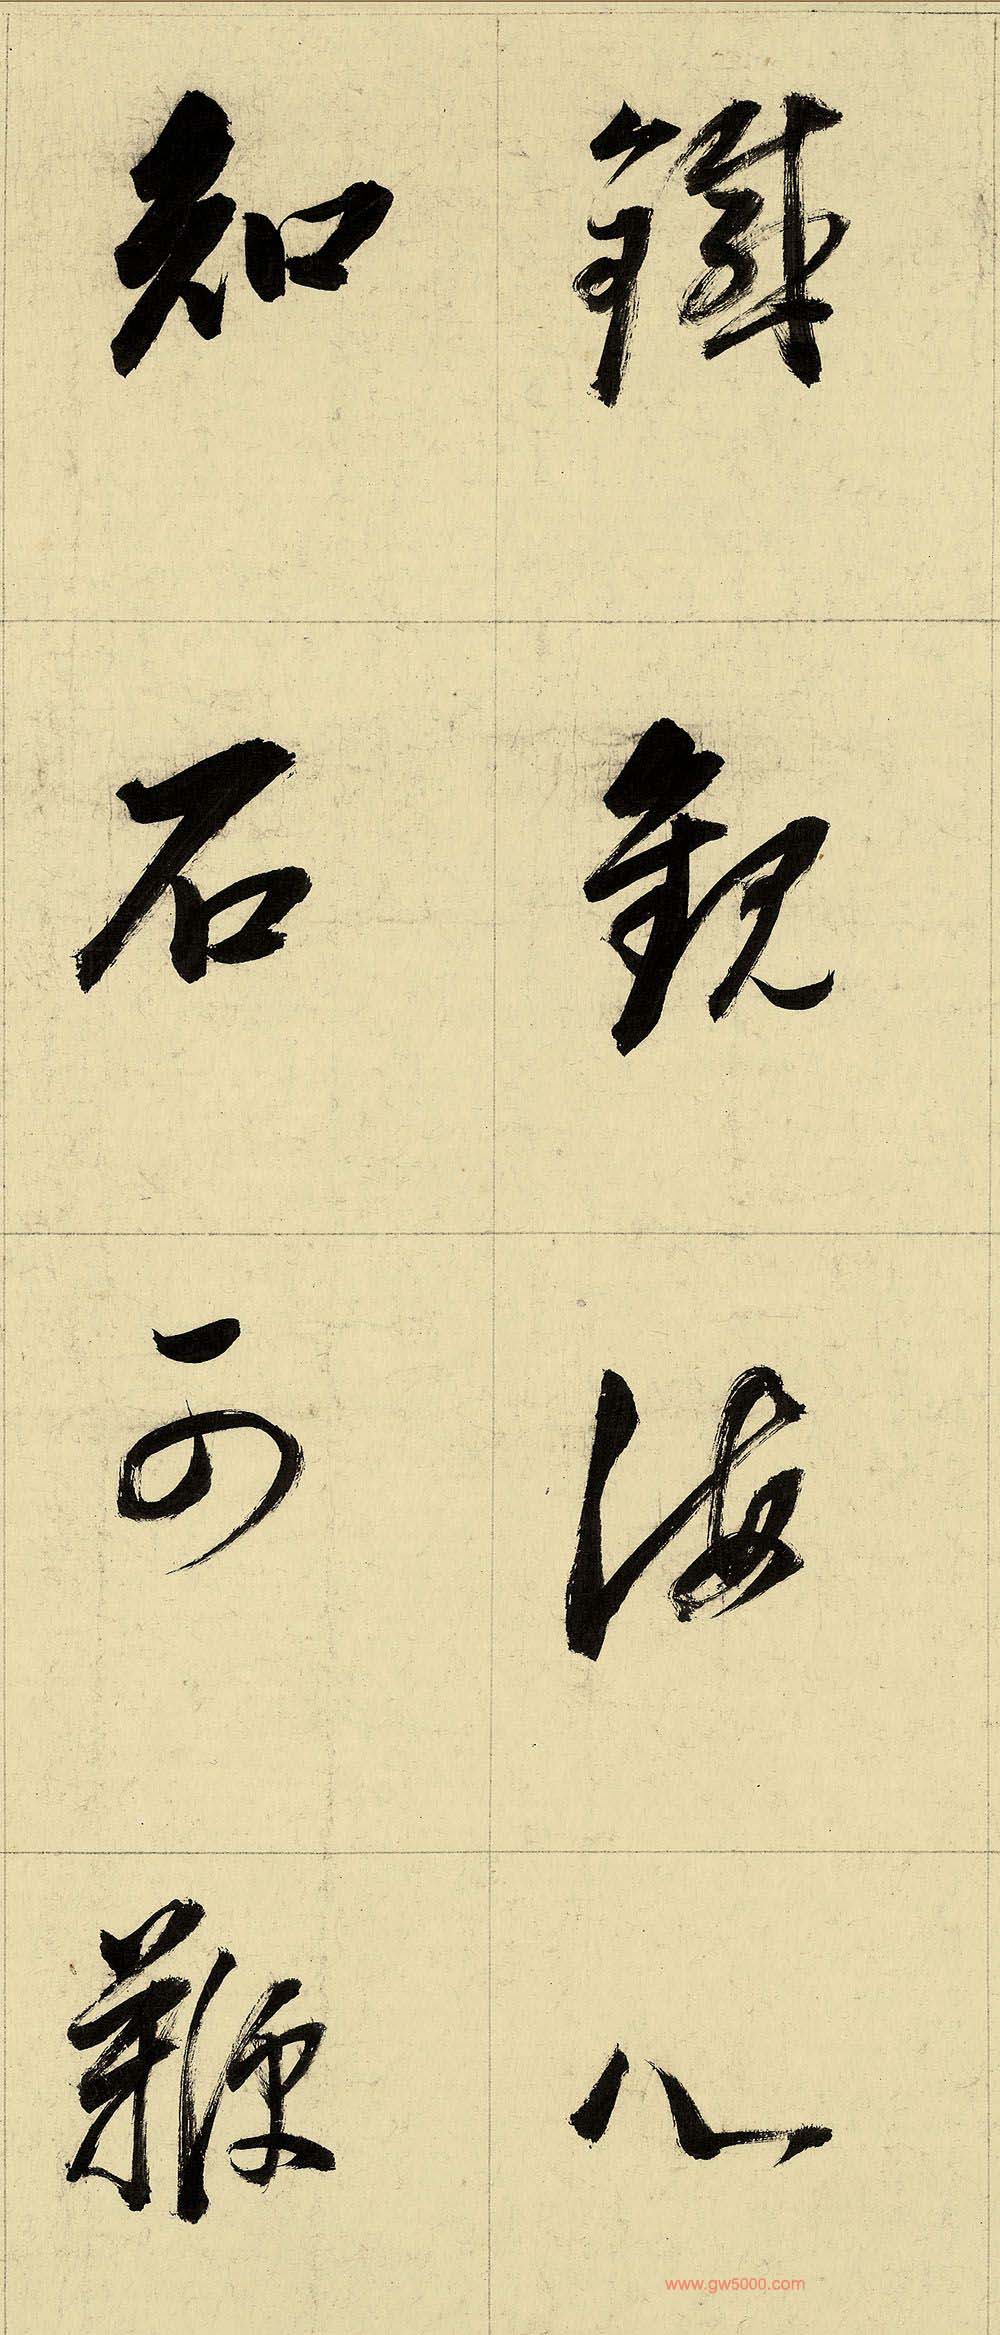 鐵観海八
知石可鞭
www.gw5000.com